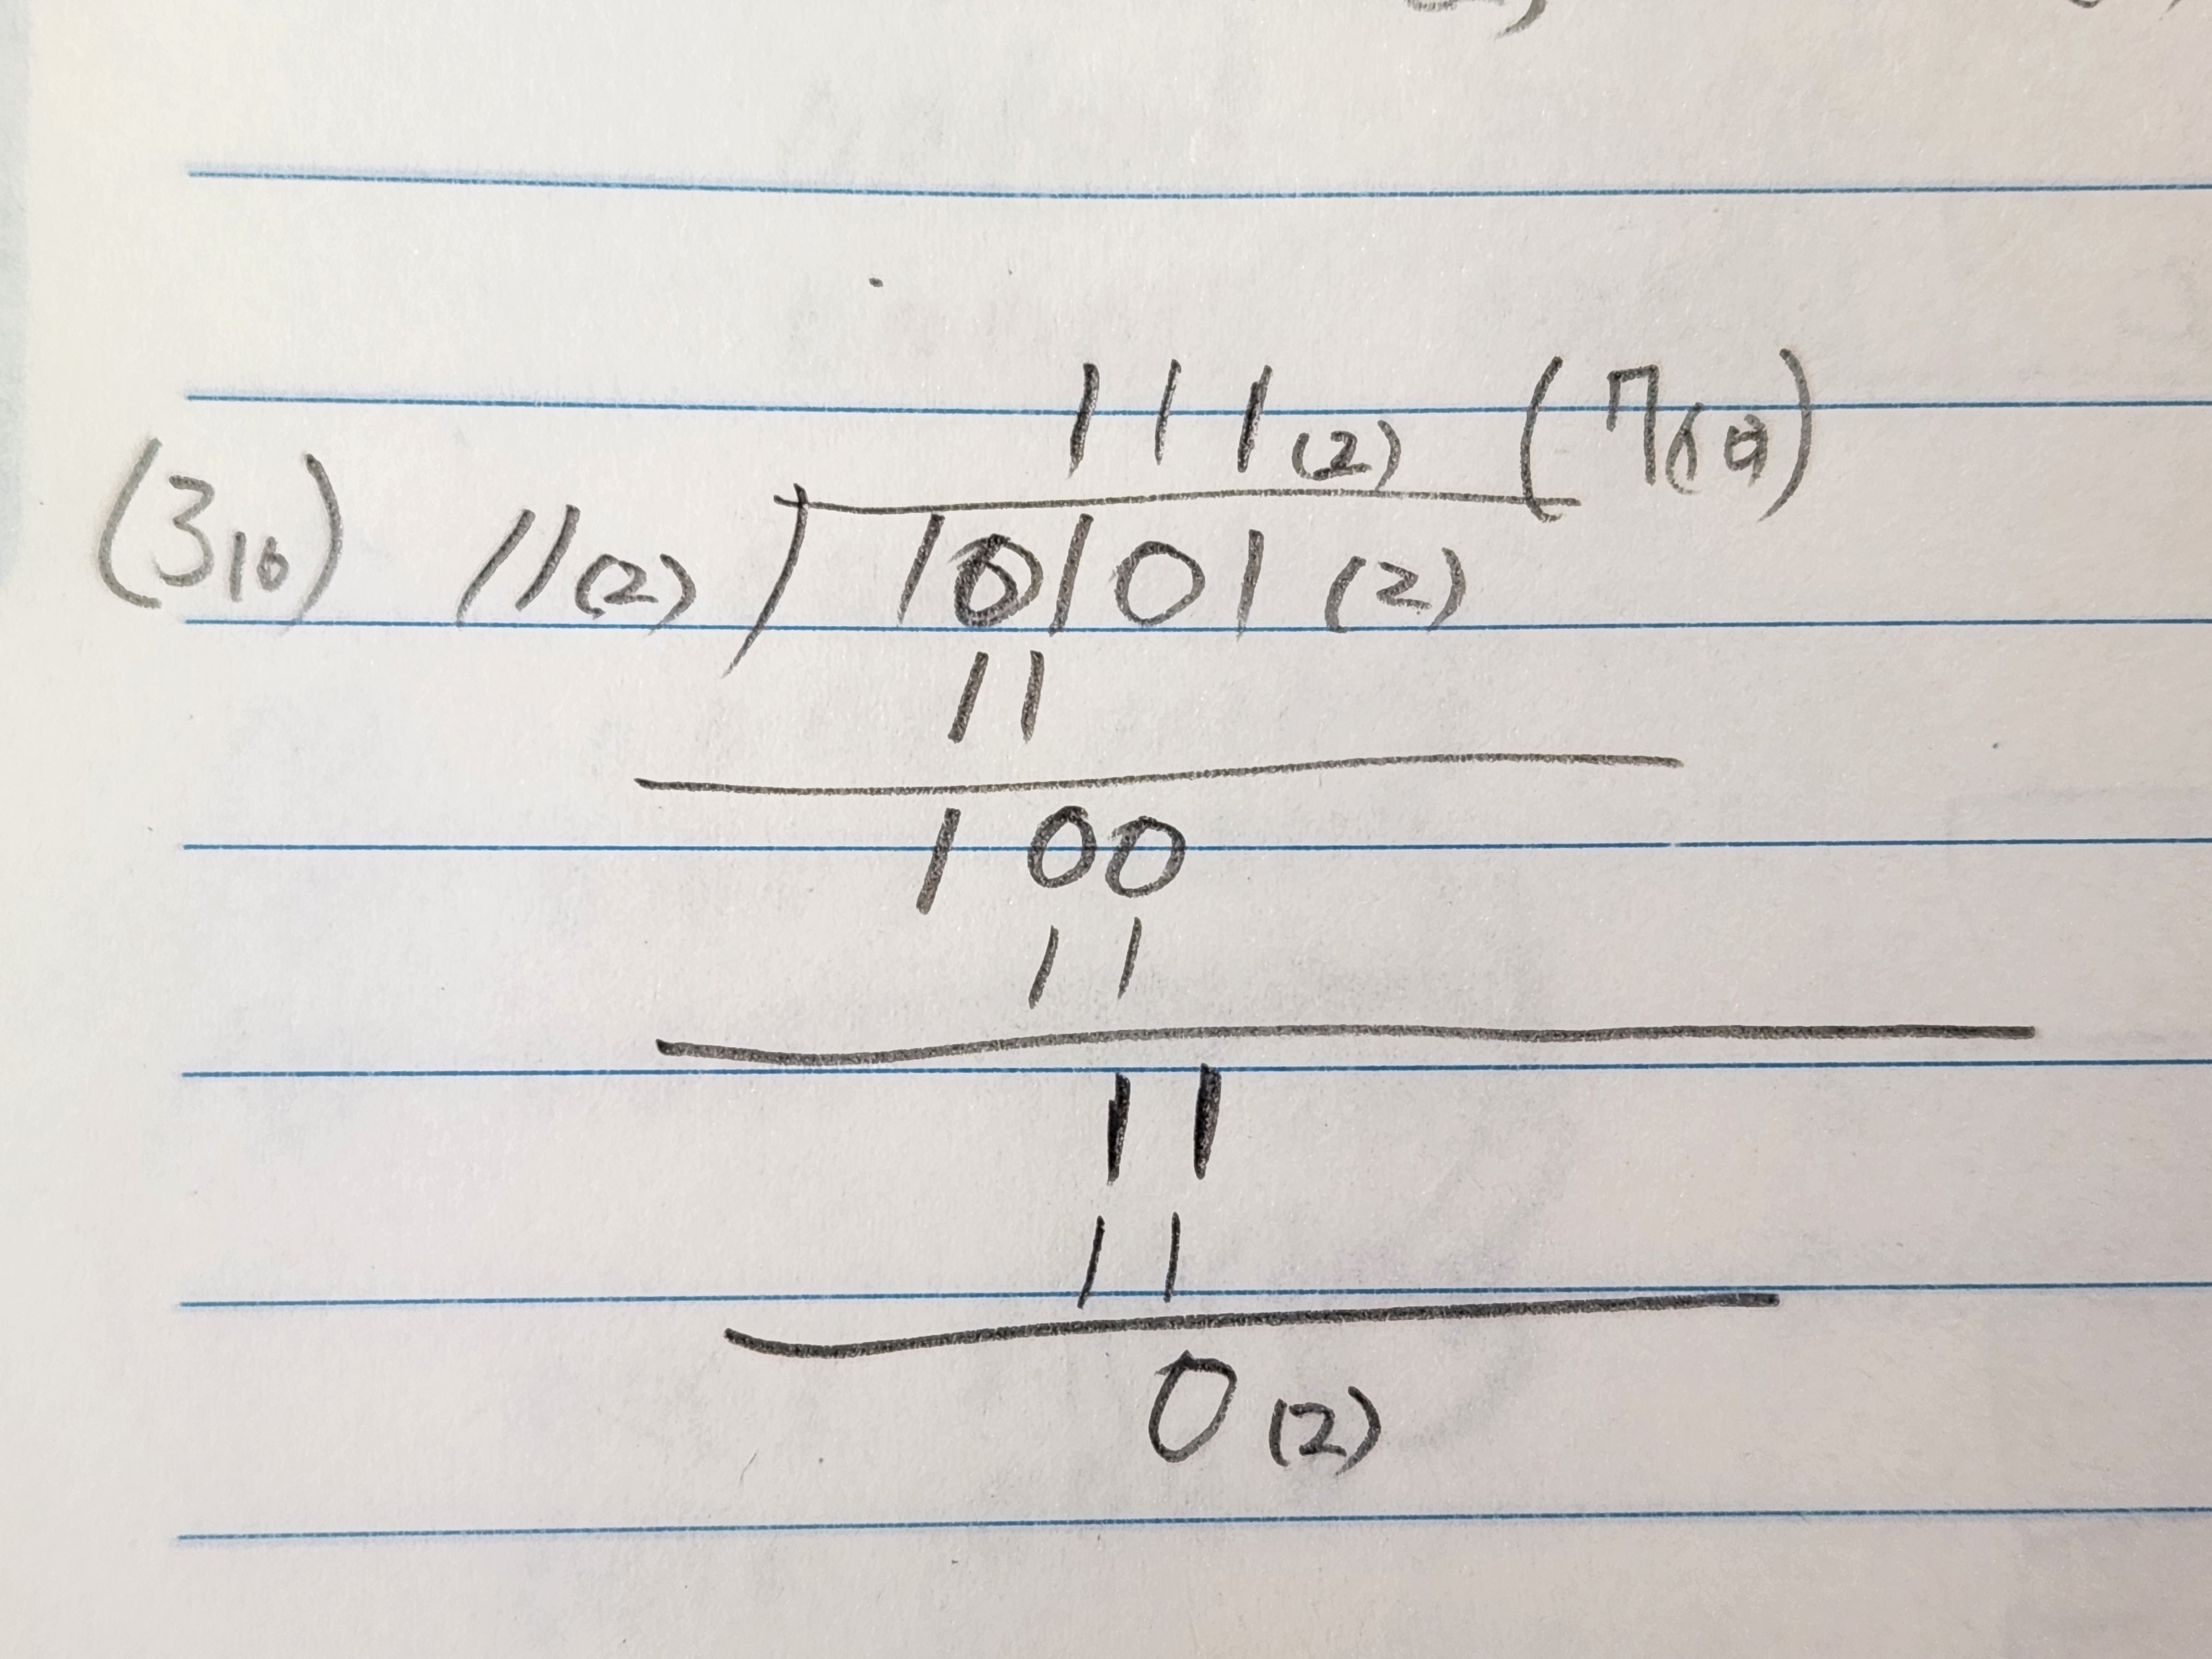 111(2) (7(10))
(310) 11(2) ) 10101 (2)
11
100
11
11
11
0 (2)